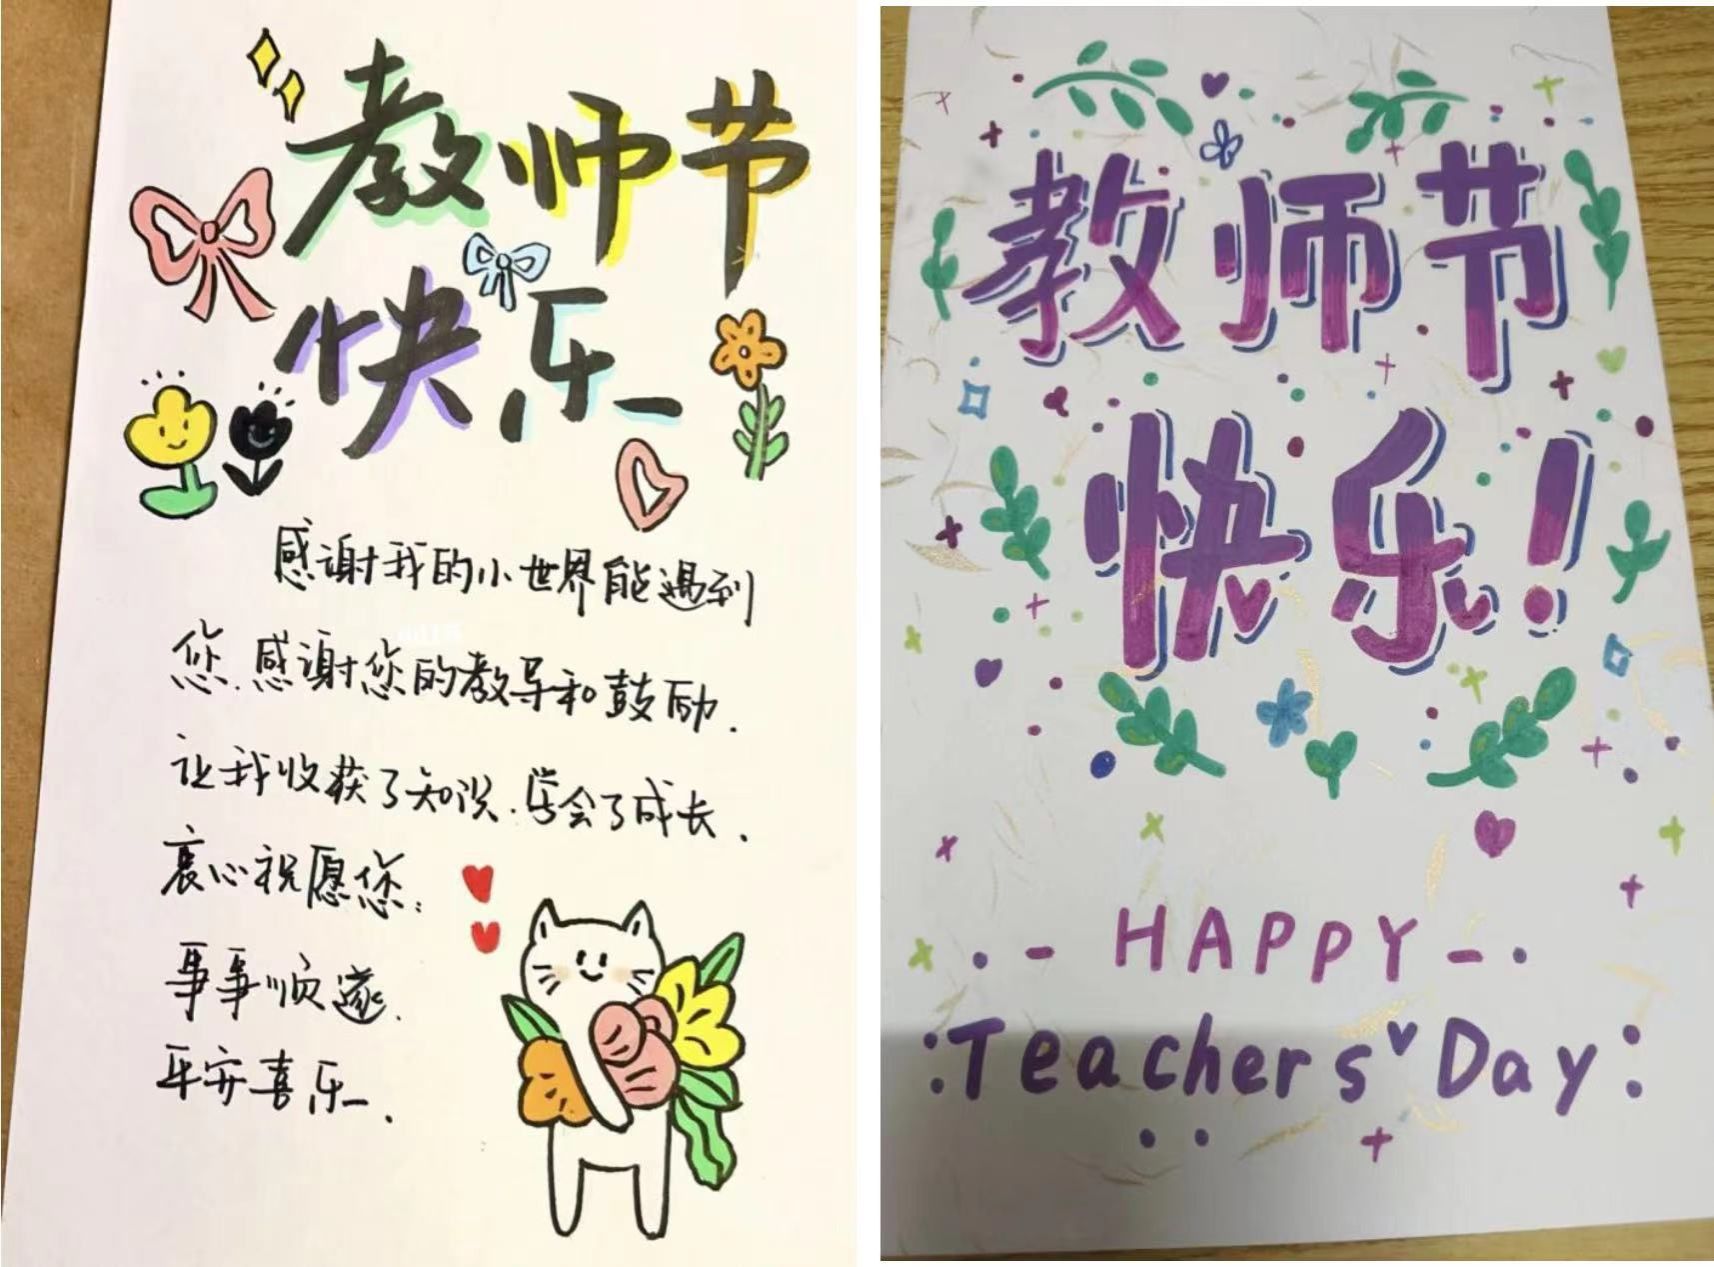 教师节
快乐
感谢我的小世界能遇到
您.感谢您的教导和鼓励.
让我收获了知识.学会了成长.
衷心祝愿您:
事事顺遂.
平安喜乐.
教师节
快乐!
HAPPY
Teachers' Day